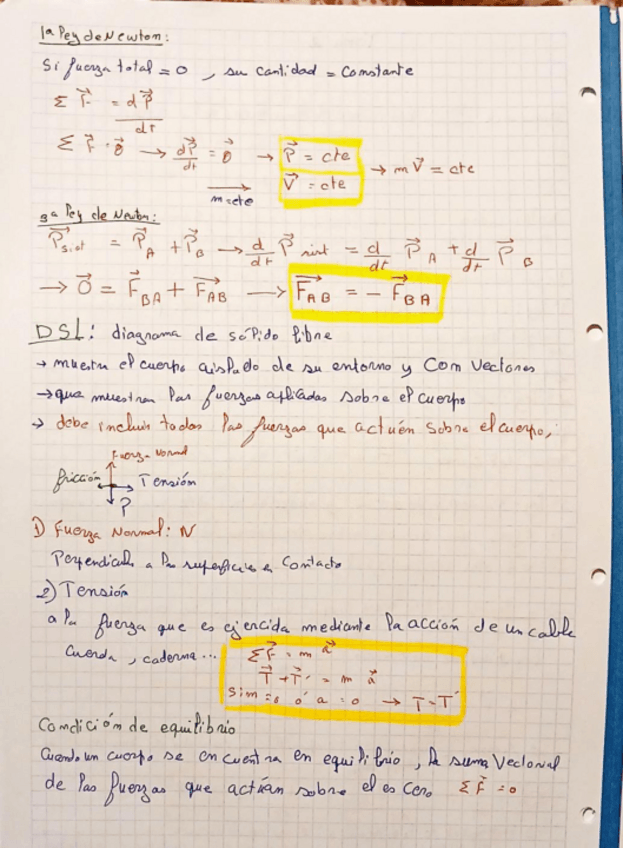 1ª Ley de Newton:
Si fuerza total = 0 , su cantidad = Constante
Σ F⃗ = dP⃗/dt
Σ F⃗ = 0⃗ → dP⃗/dt = 0⃗ → P⃗ = cte → m V⃗ = cte
m=cte V⃗ = cte
3ª Ley de Newton:
P⃗sist = P⃗A + P⃗B → d/dt P⃗sist = d/dt P⃗A + d/dt P⃗B
→ 0⃗ = F⃗BA + F⃗AB → F⃗AB = - F⃗BA
DSL: diagrama de sólido libre
→ muestra el cuerpo aislado de su entorno y Con Vectores
→ que muestran las fuerzas aplicadas sobre el cuerpo
→ debe incluir todas las fuerzas que actuén sobre el cuerpo,
Fuerza Normal
fricción Tensión
P
1) Fuerza Normal: N
Perpendicular a las superficies en Contacto
2) Tensión
a la fuerza que es ejercida mediante la acción de un cable
cuerda, cadena...
ΣF⃗ = m a⃗
T⃗ + T⃗' = m a⃗
Si m = 0 ó a = 0 → T = T'
Condición de equilibrio
Cuando un cuerpo se encuentra en equilibrio, la suma Vectorial
de las fuerzas que actúan sobre el es Cero. ΣF⃗ = 0